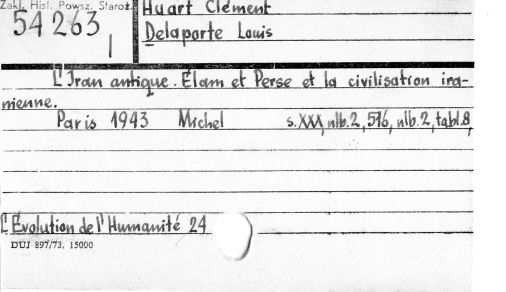 Zakł. Hist. Powsz. Staroż.
54263
I
Huart Clément
Delaporte Louis
L'Iran antique. Elam et Perse et la civilisation ira-
nienne.
Paris 1943 Michel s. XXI, nlb. 2, 516, nlb. 2, tabl. 8,
L'Évolution de l'Humanité 24
DUJ 897/73, 15000